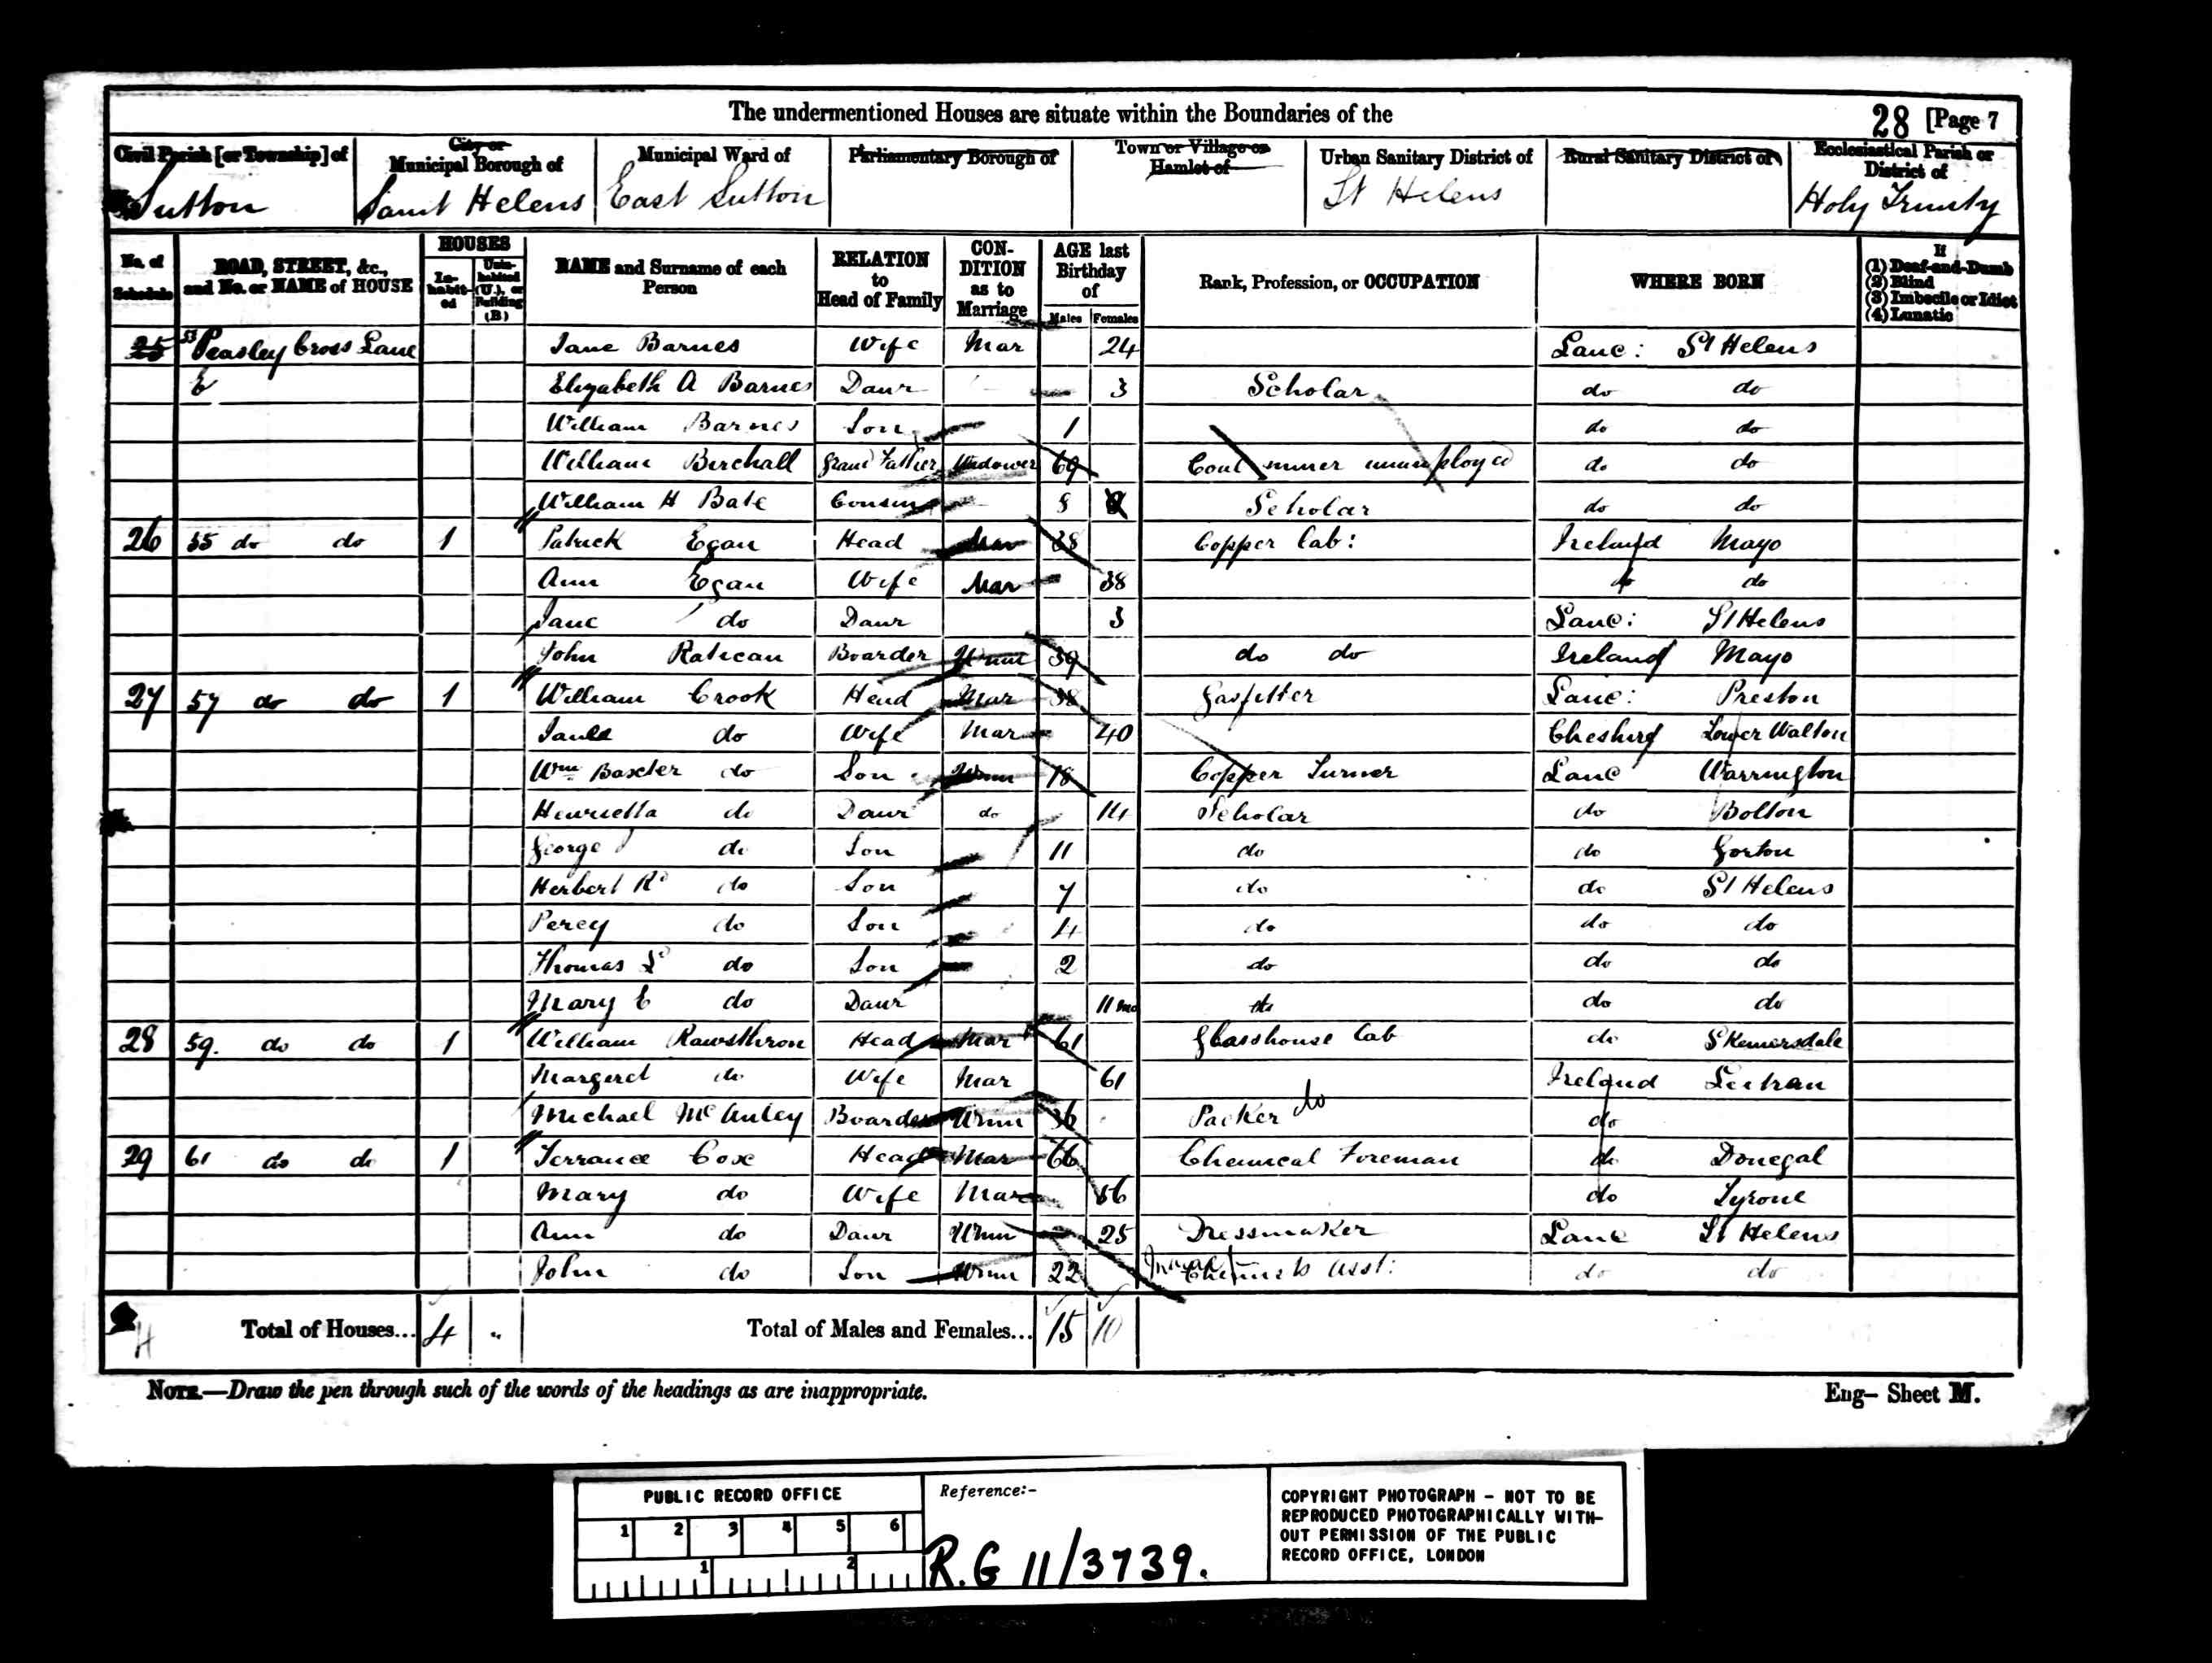 The undermentioned Houses are situate within the Boundaries of the
28 [Page 7
Civil Parish [or Township] of
Sutton
City or Municipal Borough of
Saint Helens
Municipal Ward of
East Sutton
Parliamentary Borough of
Town or Village or Hamlet of
Urban Sanitary District of
St Helens
Rural Sanitary District of
Ecclesiastical Parish or District of
Holy Trinity
No. of Schedule
ROAD, STREET, &c., and No. or NAME of HOUSE
HOUSES
In-habit-ed
Unin-habited (U.), or Building (B)
NAME and Surname of each Person
RELATION to Head of Family
CON-DITION as to Marriage
AGE last Birthday of
Males Females
Rank, Profession, or OCCUPATION
WHERE BORN
If (1) Deaf-and-Dumb (2) Blind (3) Imbecile or Idiot (4) Lunatic
25 53 Peasley Cross Lane Jane Barnes Wife Mar 24 Lanc: St Helens
E Elizabeth A Barnes Daur 3 Scholar do do
William Barnes Son 1 do do
William Birchall Grand Father Widower 69 Coal miner unemployed do do
William H Bate Cousin 8 Scholar do do
26 55 do do 1 Patrick Egan Head Mar 38 Copper Lab: Ireland Mayo
Ann Egan Wife Mar 38 do do
Jane do Daur 3 Lanc: St Helens
John Ratican Boarder Unm 39 do do Ireland Mayo
27 57 do do 1 William Crook Head Mar 38 Gasfitter Lanc: Preston
do Wife Mar 40 Cheshire Lower Walton
Wm Baxter do Son Unm 18 Copper Turner Lanc Warrington
Henrietta do Daur do 14 Scholar do Bolton
George do Son 11 do do Gorton
Herbert Rd do Son 7 do do St Helens
Percy do Son 4 do do do
Thomas S do Son 2 do do do
Mary E do Daur 11 mo do do do
28 59. do do 1 William Rawsthron Head Mar 61 Glasshouse Lab do Skemersdale
Margeret do Wife Mar 61 Ireland Leitran
Michael McAnley Boarder Unm 36 Packer do do
29 61 do do 1 Terrance Cox Head Mar 66 Chemical Foreman do Donegal
Mary do Wife Mar 56 do Tyrone
Ann do Daur Unm 25 Dressmaker Lanc St Helens
John do Son Unm 22 Chemists Asst: do do
4
Total of Houses... 4 "
Total of Males and Females... 15 10
NOTE.—Draw the pen through such of the words of the headings as are inappropriate.
Eng- Sheet M.
PUBLIC RECORD OFFICE
1 2 3 4 5 6
1 2
Reference:-
R.G 11/3739.
COPYRIGHT PHOTOGRAPH - NOT TO BE
REPRODUCED PHOTOGRAPHICALLY WITH-
OUT PERMISSION OF THE PUBLIC
RECORD OFFICE, LONDON